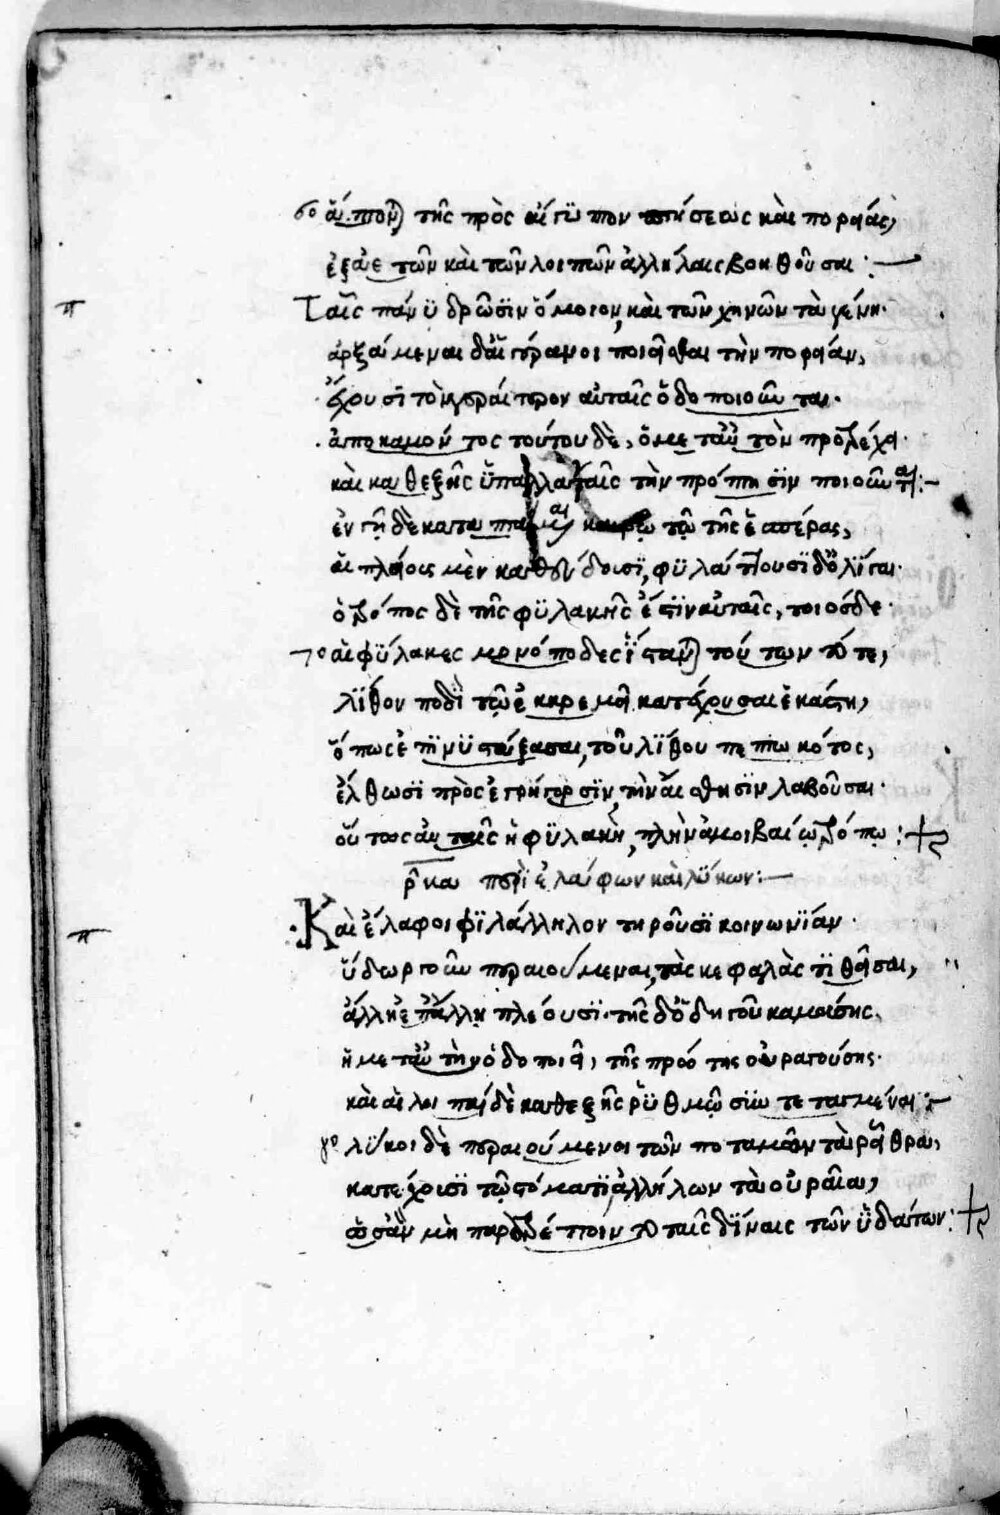 ἅπτονται τῆς πρὸς αἴγυπτον πτήσεως καὶ πορείας,
καὶ τῶν λοιπῶν ἀλλήλαις βοηθοῦσαι:
π Ταῖς πᾶν ὑδρῶσιν ὅμοιον, καὶ τῶν χηνῶν τὰ γένη.
ἀρξάμεναι δ' αἱ γέρανοι ποιεῖσθαι τὴν πορείαν,
ἔχουσι τὸν γεραίτερον αὐταῖς ὁδοποιοῦντα.
ἀποκαμόντος τούτου δὲ, ὁ μετ' αὐτὸν προτρέχει.
καὶ καθεξῆς ὑπαλλαγαῖς τὴν πρόπτησιν ποιοῦνται:
ἐν γῇ δὲ καταπτᾶσαι καιρῷ τῷ τῆς ἑσπέρας,
αἱ πλείους μὲν καθεύδουσι, φυλάττουσι δ' ὀλίγαι.
ὁ τρόπος δὲ τῆς φυλακῆς ἔστιν αὐταῖς, τοιόσδε.
70 αἱ φύλακες μονόποδες ἵστανται τούτων τότε,
λίθον ποδὶ τῷ ἐκκρεμεῖ κατέχουσαι ἑκάστη,
ὅπως ἐπινυστάξασαι, τοῦ λίθου πεπτωκότος,
ἔλθωσι πρὸς ἐγρήγορσιν, τὴν αἴσθησιν λαβοῦσαι.
οὕτως αὐταῖς ἡ φυλακὴ, πλὴν ἀμοιβαίῳ τρόπῳ:
ρκα περὶ ἐλάφων καὶ λύκων:
π Καὶ ἔλαφοι φιλάλληλον τηροῦσι κοινωνίαν.
ὕδωρ γοῦν περαιούμεναι, τὰς κεφαλὰς τιθεῖσαι,
ἄλλη ἐπ' ἄλλῃ πλέουσι. τῆς δ' ὁδηγοῦ καμούσης.
ἡ μετ' αὐτὴν ὁδοποιεῖ, τῆς πρόσθεν οὐραγούσης.
καὶ αἱ λοιπαὶ δὲ καθεξῆς ῥυθμῷ συντεταγμέναι:
80 λύκοι δὲ περαιούμενοι τῶν ποταμῶν τὰ ῥεῖθρα,
κατέχουσι τῷ στόματι ἀλλήλων τὰ οὐραῖα,
ὡς ἂν μὴ παρατρέποιντο ταῖς δίναις τῶν ὑδάτων: